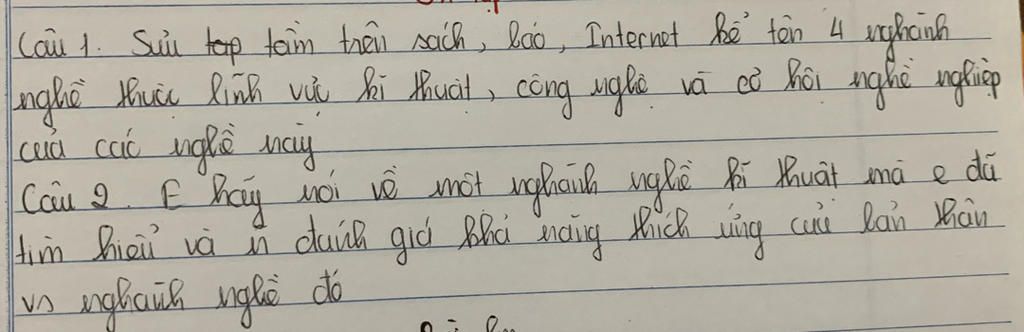 Câu 1. Sưu tập tầm trên sách, báo, Internet kể tên 4 nghành
nghề thuộc lĩnh vực kĩ thuật, công nghệ và cơ hội nghề nghiệp
của các nghề này
Câu 2. E hãy nói về một nghành nghề kĩ thuật mà e đã
tìm hiểu và n đánh giá khả năng thích ứng của bản thân
vs nghành nghề đó